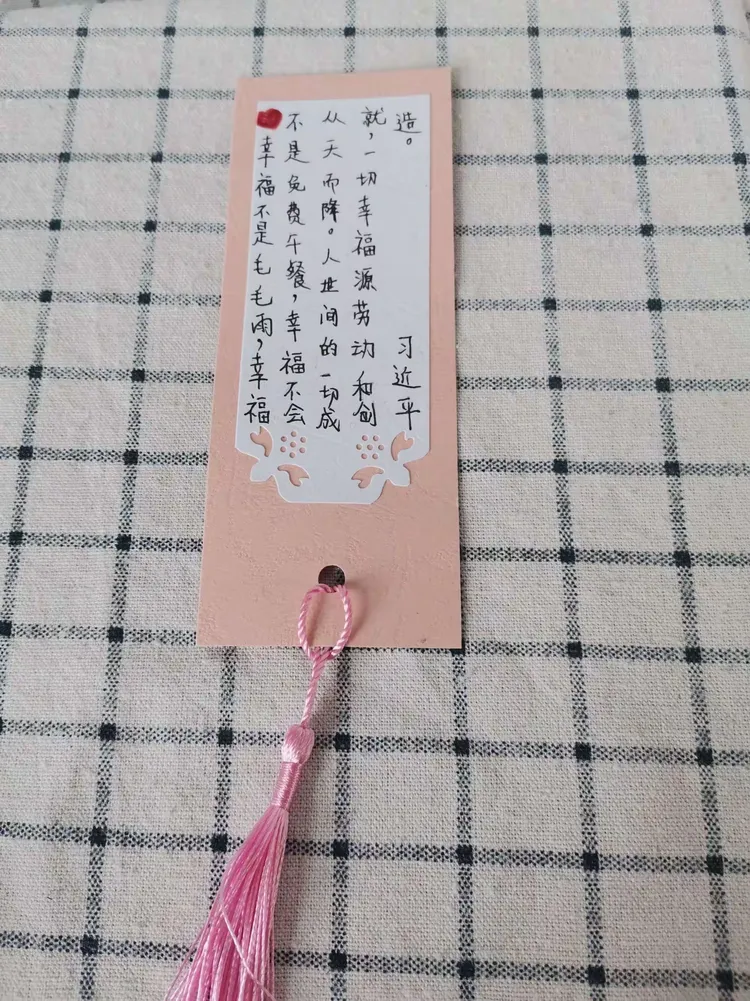 幸福不是毛毛雨,幸福
不是免费午餐,幸福不会
从天而降。人世间的一切成
就,一切幸福源劳动和创
造。
习近平